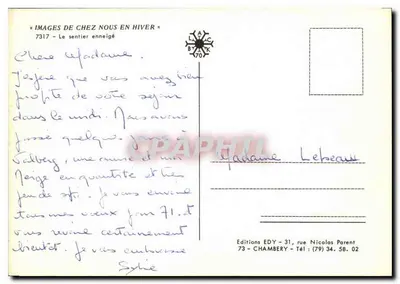 « IMAGES DE CHEZ NOUS EN HIVER »
7317 - Le sentier enneigé
Chère Madame.
J'espère que vous avez bien
profité de votre séjour
dans le midi. Nous avons
passé quelques jours à
Valberg, une amie et moi
Neige en quantité et très
peu de
tous mes vœux pour 71. et
vous revoir certainement
bientôt. Je vous embrasse
Sylvie
Madame Lebeaux
CPAPHIL
Editions EDY - 31, rue Nicolas Parent
73 - CHAMBERY - Tél : (79) 34. 58. 02